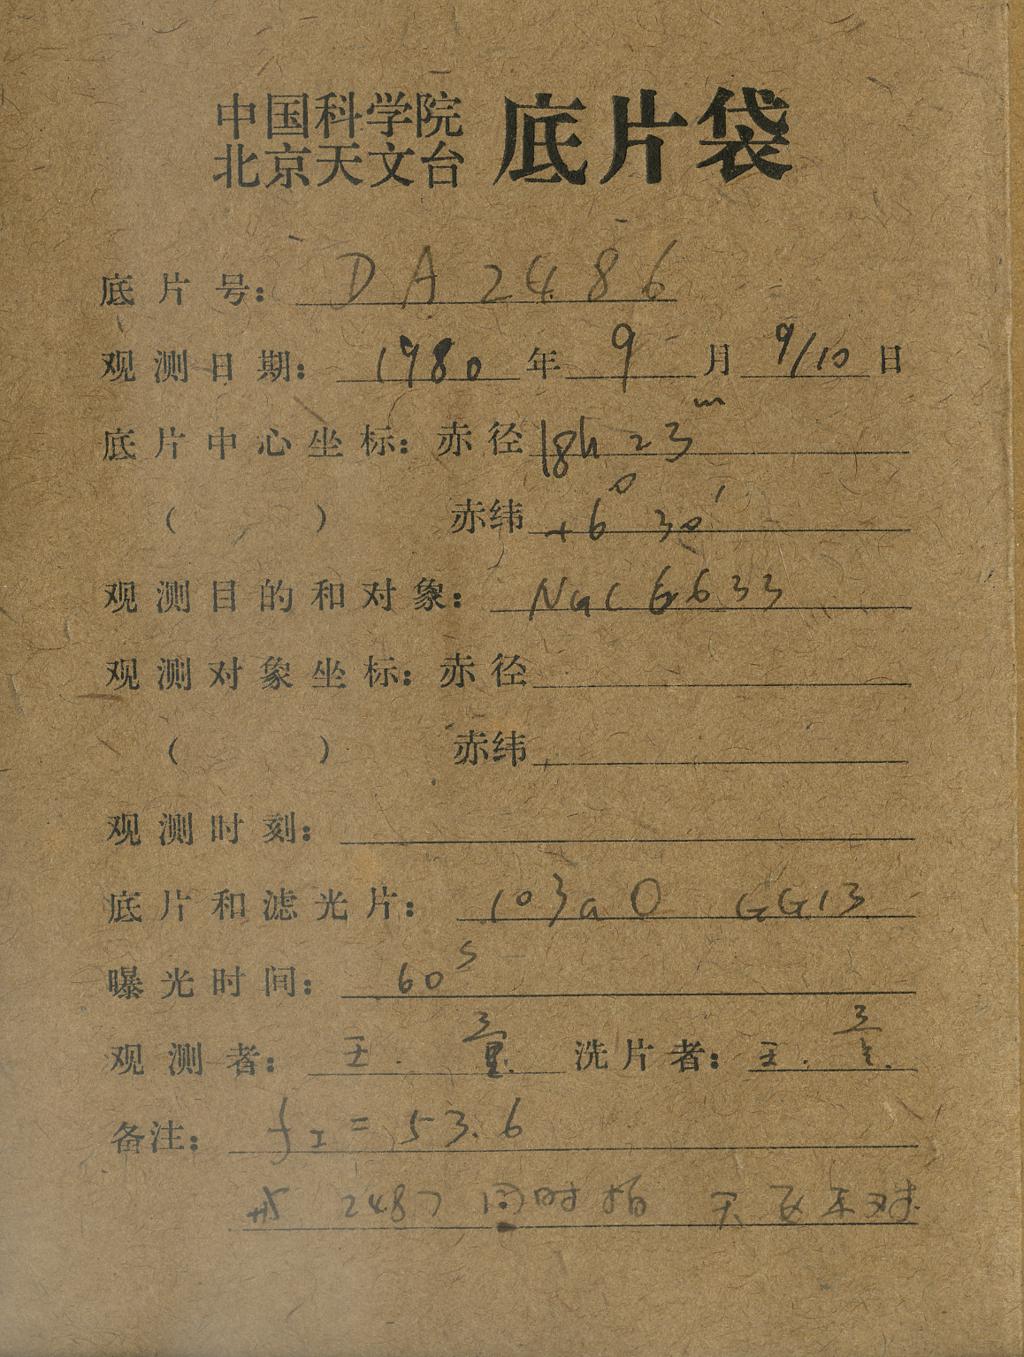 中国科学院
北京天文台
底片袋
底片号: DA2486
观测日期: 1980年 9月 9/10日
底片中心坐标: 赤径 18h 23m
( ) 赤纬 +6° 30′
观测目的和对象: NGC 6633
观测对象坐标: 赤径
( ) 赤纬
观测时刻:
底片和滤光片: 103aO GG13
曝光时间: 60s
观测者: 王. 洗片者: 王.
备注: fI = 53.6
2487 同时拍 天区未对